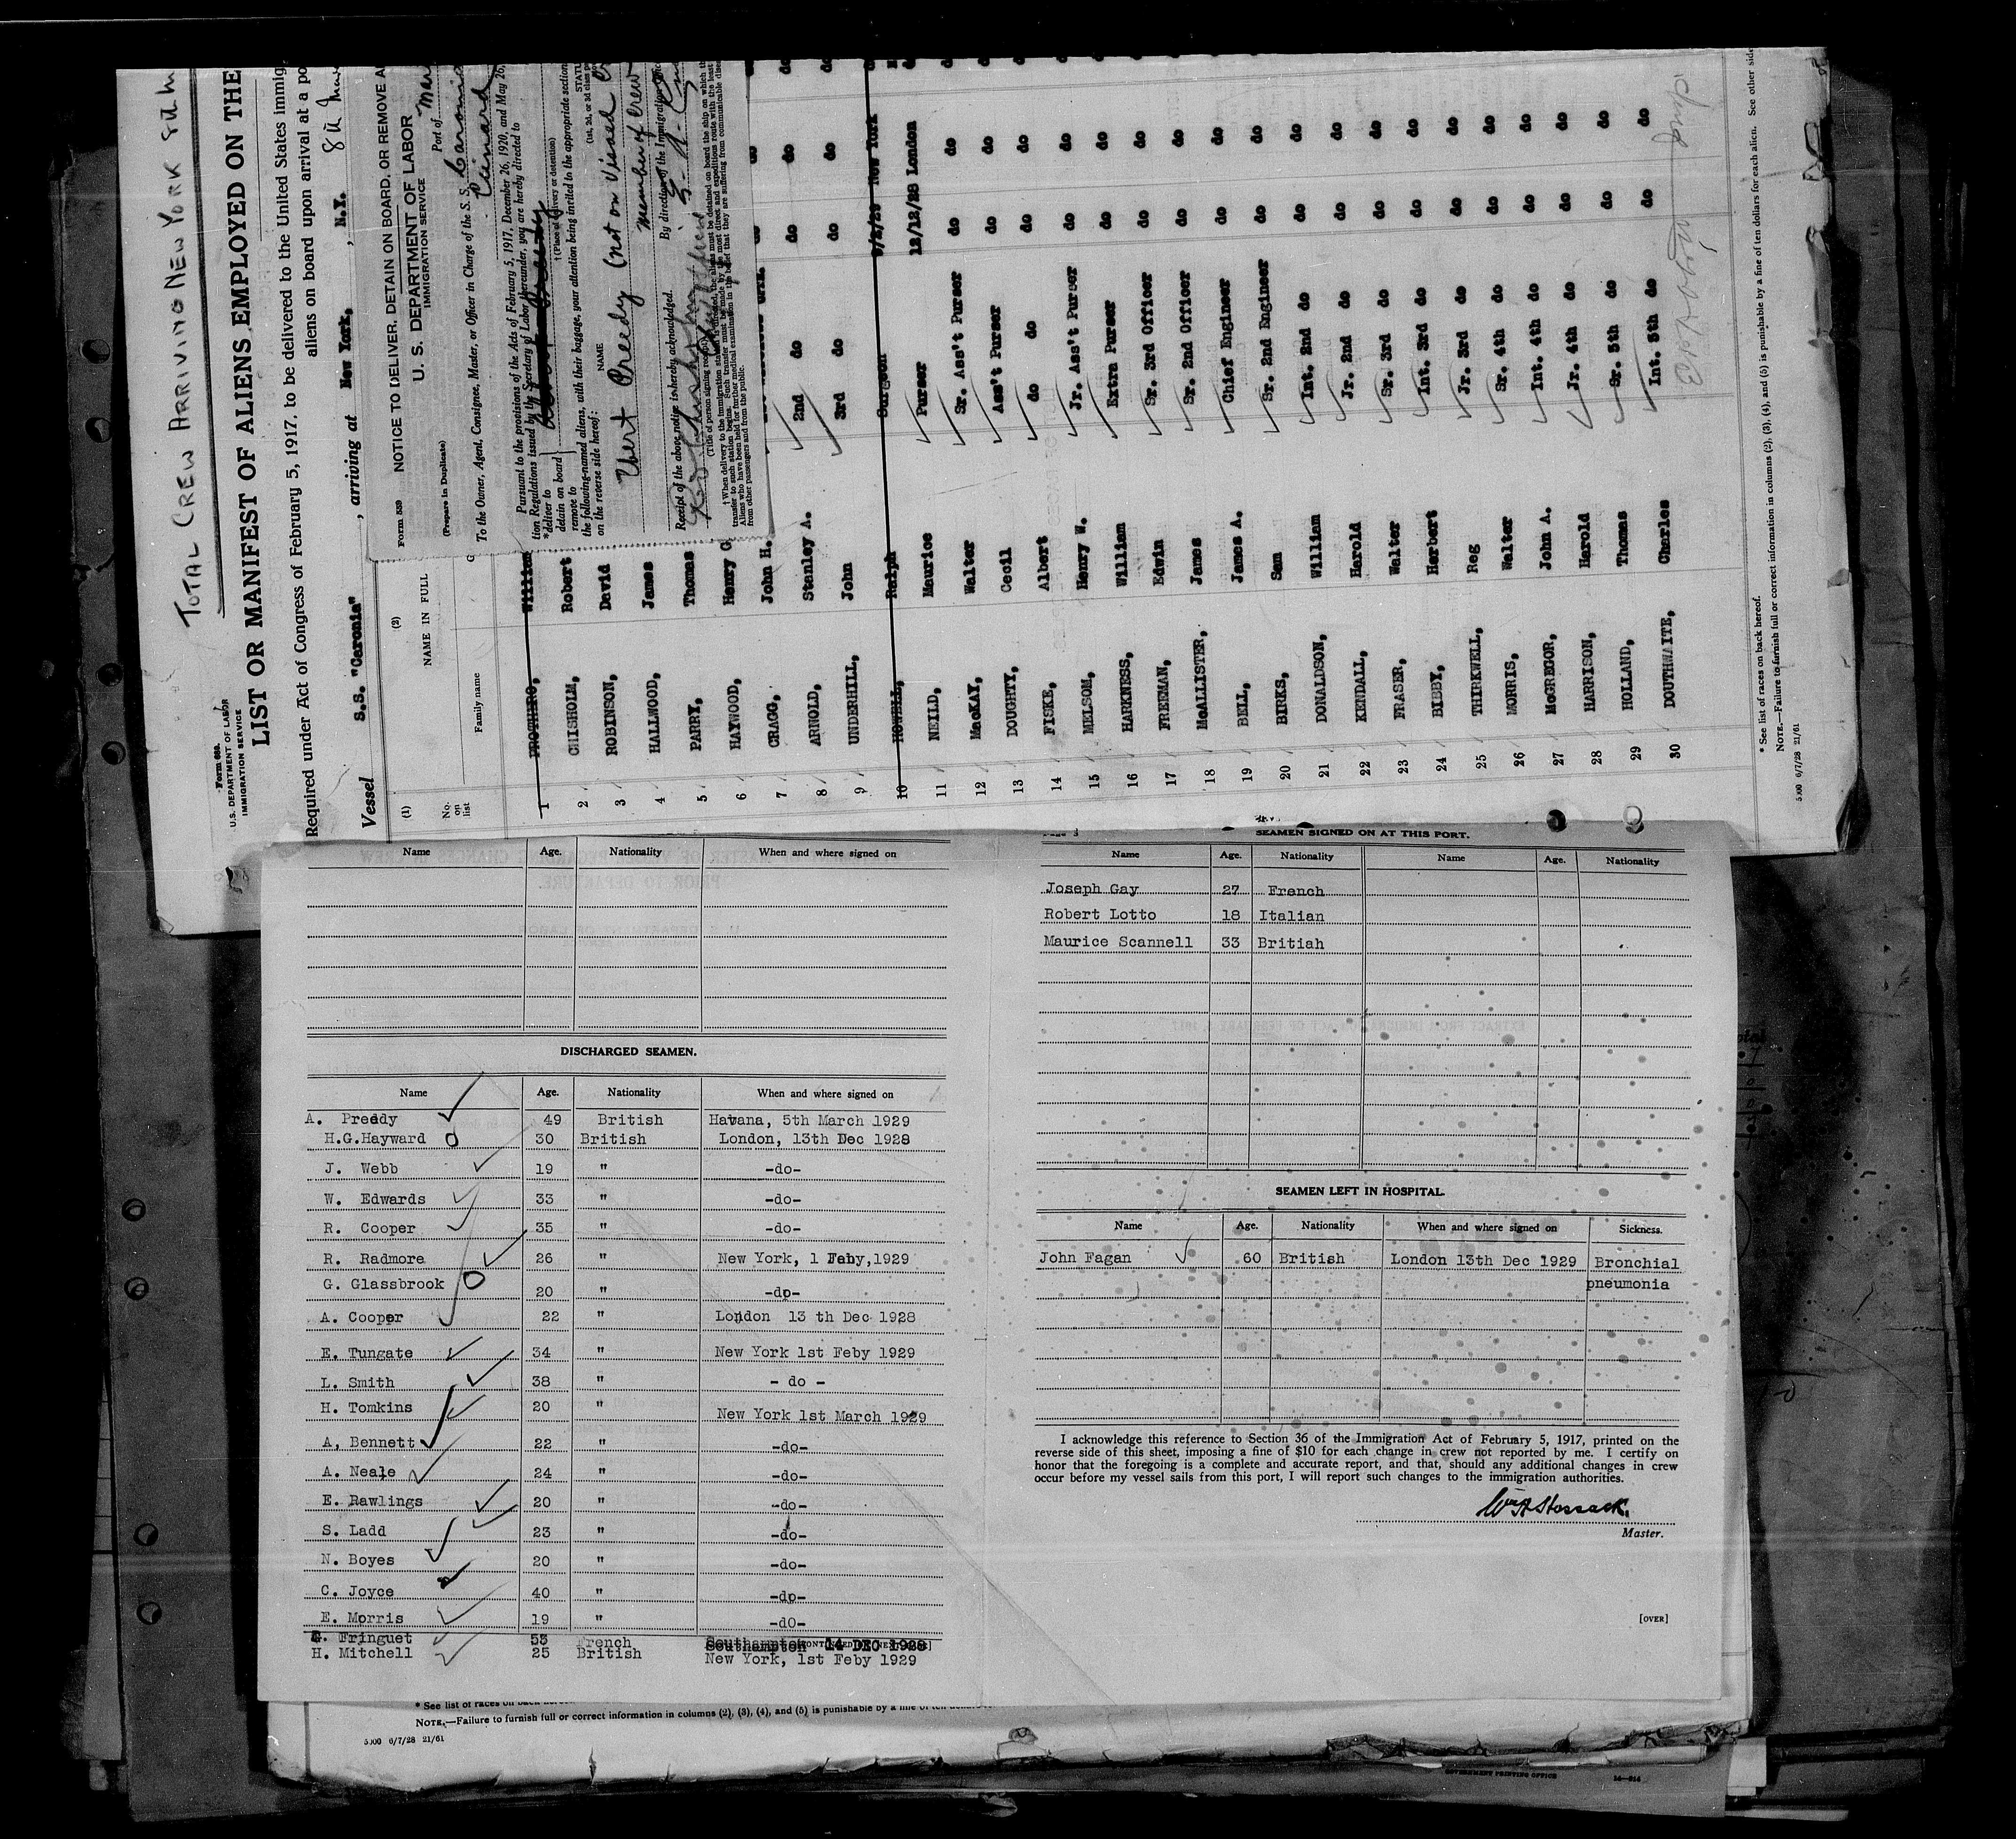 TOTAL CREW ARRIVING NEW YORK 8th
Form 689.
U.S. DEPARTMENT OF LABOR
IMMIGRATION SERVICE
LIST OR MANIFEST OF ALIENS EMPLOYED ON THE
Required under Act of Congress of February 5, 1917, to be delivered to the United States immig
aliens on board upon arrival at a po
Vessel S.S. "Caronia" , arriving at New York, , N.Y. 8th
(1) (2)
No. on list
NAME IN FULL
Family name
Form 539
NOTICE TO DELIVER, DETAIN ON BOARD, OR REMOVE A
U. S. DEPARTMENT OF LABOR
IMMIGRATION SERVICE
(Prepare in Duplicate)
Port of
To the Owner, Agent, Consignee, Master, or Officer in Charge of the S. S. Caronia
Cunard
Pursuant to the provisions of the Acts of February 5, 1917, December 26, 1920, and May 26,
tion Regulations issued by the Secretary of Labor thereunder, you are hereby directed to
*deliver to
detain on board
remove to
†(Place of delivery or detention)
the following-named aliens, with their baggage, your attention being invited to the appropriate section
on the reverse side hereof:
NAME
STATU
(1st, 2d, or 3d class pa
Albert Preedy (not on visaed Cr
member of crew
By direction of the Immigration Office
Receipt of the above notice is hereby acknowledged.
(Title of person signing receipt)
†When delivery to the immigration station is directed, the aliens must be detained on board the ship on which th
transfer to such station begins. Such transfer must be made by the most direct and expeditious route with the least
Aliens who have been held for further medical examination in the belief that they are suffering from communicable dise
from other passengers and from the public.
1 PROTHERO, William
2 CHISHOLM, Robert
3 ROBINSON, David
4 HALLWOOD, James
5 PARRY, Thomas
6 HAYWOOD, Henry G
7 CRAGG, John H.
8 ARNOLD, Stanley A. 2nd do do do
9 UNDERHILL, John 3rd do do do
10 HOWELL, Ralph Surgeon New York
11 NEILD, Maurice Purser 12/12/28 London
12 MacKAY, Walter Sr. Ass't Purser do do
13 DOUGHTY, Cecil Ass't Purser do do
14 FISKE, Albert do do do do
15 MELSOM, Henry W. Jr. Ass't Purser do do
16 HARKNESS, William Extra Purser do do
17 FREEMAN, Edwin Sr. 3rd Officer do do
18 McALLISTER, James Sr. 2nd Officer do do
19 BELL, James A. Chief Engineer do do
20 BIRKS, Sam Sr. 2nd Engineer do do
21 DONALDSON, William Int. 2nd do do do
22 KENDALL, Harold Jr. 2nd do do do
23 FRASER, Walter Sr. 3rd do do do
24 BIBBY, Herbert Int. 3rd do do do
25 THIRKWELL, Reg Jr. 3rd do do do
26 MORRIS, Walter Sr. 4th do do do
27 McGREGOR, John A. Int. 4th do do do
28 HARRISON, Harold Jr. 4th do do do
29 HOLLAND, Thomas Sr. 5th do do do
30 DOUTHWAITE, Charles Int. 5th do do do
* See list of races on back hereof.
NOTE.—Failure to furnish full or correct information in columns (2), (3), (4), and (5) is punishable by a fine of ten dollars for each alien. See other side
5000 6/7/28 21/61
Name Age. Nationality When and where signed on
DISCHARGED SEAMEN.
Name Age. Nationality When and where signed on
A. Preddy 49 British Havana, 5th March 1929
H.G.Hayward 30 British London, 13th Dec 1928
J. Webb 19 " -do-
W. Edwards 33 " -do-
R. Cooper 35 " -do-
R. Radmore 26 " New York, 1 Feby,1929
G. Glassbrook 20 " -do-
A. Cooper 22 " London 13 th Dec 1928
E. Tungate 34 " New York 1st Feby 1929
L. Smith 38 " - do -
H. Tomkins 20 " New York 1st March 1929
A, Bennett 22 " -do-
A. Neale 24 " -do-
E. Rawlings 20 " -do-
S. Ladd 23 " -do-
N. Boyes 20 " -do-
C. Joyce 40 " -do-
E. Morris 19 " -dO-
Fringuet 53 French Southampton 14 DEC 1928
H. Mitchell 25 British New York, 1st Feby 1929
SEAMEN SIGNED ON AT THIS PORT.
Name Age. Nationality Name Age. Nationality
Joseph Gay 27 French
Robert Lotto 18 Italian
Maurice Scannell 33 Britiah
SEAMEN LEFT IN HOSPITAL.
Name Age. Nationality When and where signed on Sickness.
John Fagan 60 British London 13th Dec 1929 Bronchial
pneumonia
I acknowledge this reference to Section 36 of the Immigration Act of February 5, 1917, printed on the
reverse side of this sheet, imposing a fine of $10 for each change in crew not reported by me. I certify on
honor that the foregoing is a complete and accurate report, and that, should any additional changes in crew
occur before my vessel sails from this port, I will report such changes to the immigration authorities.
Master.
[OVER]
* See list of races on back
NOTE.—Failure to furnish full or correct information in columns (2), (3), (4), and (5) is punishable by a fine of ten
5000 6/7/28 21/61
GOVERNMENT PRINTING OFFICE